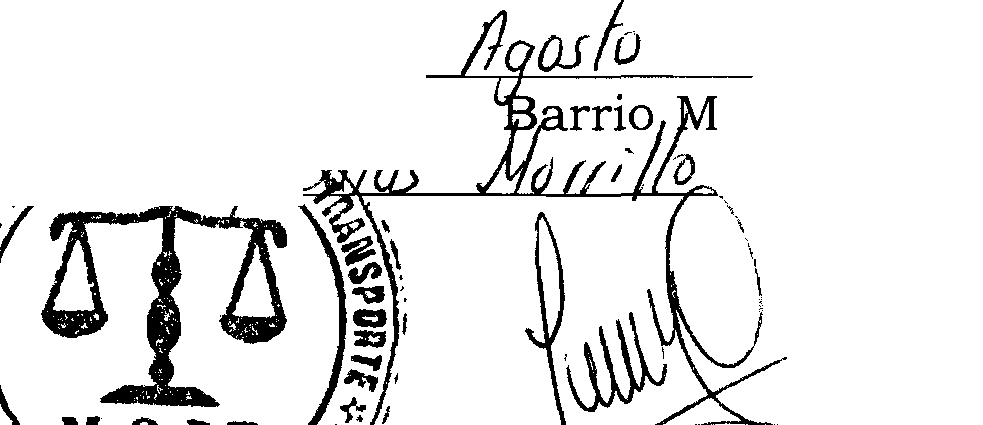 Agosto
Barrio M
Morrillo
TRANSPORTE